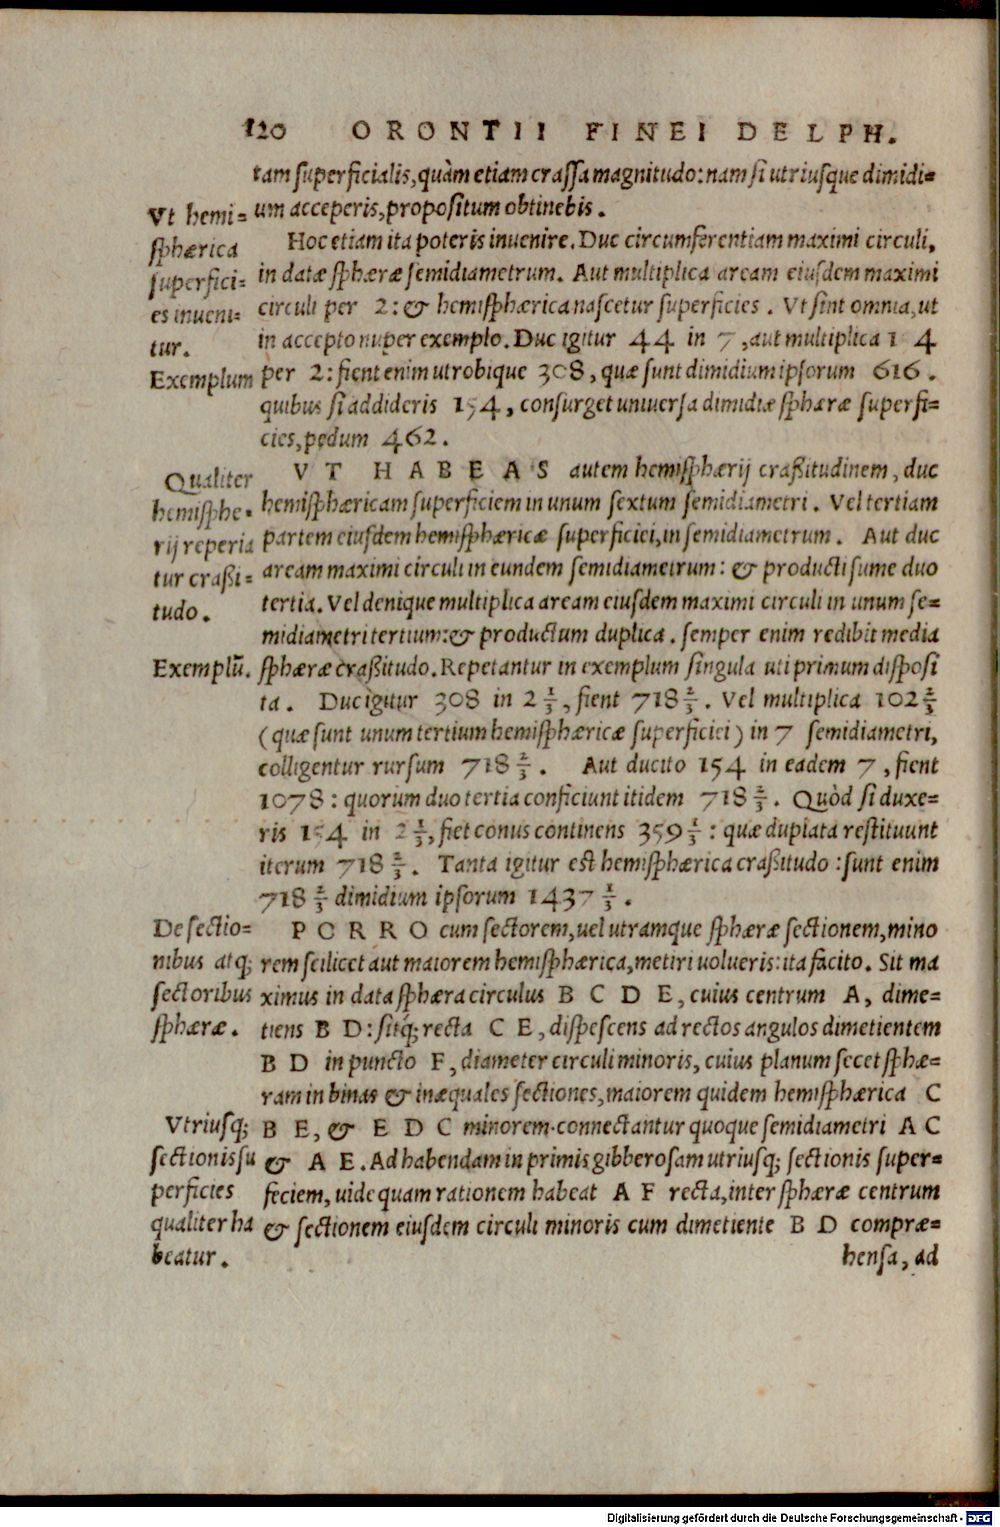 120 ORONTII FINEI DELPH.
tam superficialis, quàm etiam crassa magnitudo: nam si utriusque dimidi=
um acceperis, propositum obtinebis.
Vt hemi=
sphærica
superfici=
es inueni=
tur.
Hoc etiam ita poteris inuenire. Duc circumferentiam maximi circuli,
in datæ sphæræ semidiametrum. Aut multiplica aream eiusdem maximi
circuli per 2: & hemisphærica nascetur superficies. Vt sint omnia, ut
in accepto nuper exemplo. Duc igitur 44 in 7, aut multiplica 154
Exemplum
per 2: fient enim utrobique 308, quæ sunt dimidium ipsorum 616.
quibus si addideris 154, consurget uniuersa dimidiæ sphæræ superfi=
cies, pedum 462.
Qualiter
hemisphe=
rij reperia
tur craßi=
tudo.
VT HABEAS autem hemisphærij craßitudinem, duc
hemisphæricam superficiem in unum sextum semidiametri. Vel tertiam
partem eiusdem hemisphæricæ superficiei, in semidiametrum. Aut duc
aream maximi circuli in eundem semidiametrum: & producti sume duo
tertia. Vel denique multiplica aream eiusdem maximi circuli in unum se=
midiametri tertium: & productum duplica. semper enim redibit media
Exemplū.
sphæræ craßitudo. Repetantur in exemplum singula uti primum disposi
ta. Duc igitur 308 in 2 1/3, fient 718 2/3. Vel multiplica 102 2/3
(quæ sunt unum tertium hemisphæricæ superficiei) in 7 semidiametri,
colligentur rursum 718 2/3. Aut ducito 154 in eadem 7, fient
1078: quorum duo tertia conficiunt itidem 718 2/3. Quòd si duxe=
ris 154 in 2 1/3, fiet conus continens 359 1/3: quæ duplata restituunt
iterum 718 2/3. Tanta igitur est hemisphærica craßitudo: sunt enim
718 2/3 dimidium ipsorum 1437 1/3.
De sectio=
nibus atq;
sectoribus
sphæræ.
PORRO cum sectorem, uel utramque sphæræ sectionem, mino
rem scilicet aut maiorem hemisphærica, metiri uolueris: ita facito. Sit ma
ximus in data sphæra circulus B C D E, cuius centrum A, dime=
tiens B D: sitq́; recta C E, dispescens ad rectos angulos dimetientem
B D in puncto F, diameter circuli minoris, cuius planum secet sphæ=
ram in binas & inæquales sectiones, maiorem quidem hemisphærica C
Vtriusq;
sectionis su
perficies
qualiter ha
beatur.
B E, & E D C minorem. connectantur quoque semidiametri A C
& A E. Ad habendam in primis gibberosam utriusq; sectionis super=
feciem, uide quam rationem habeat A F recta, inter sphæræ centrum
& sectionem eiusdem circuli minoris cum dimetiente B D compræ=
hensa, ad
Digitalisierung gefördert durch die Deutsche Forschungsgemeinschaft - DFG